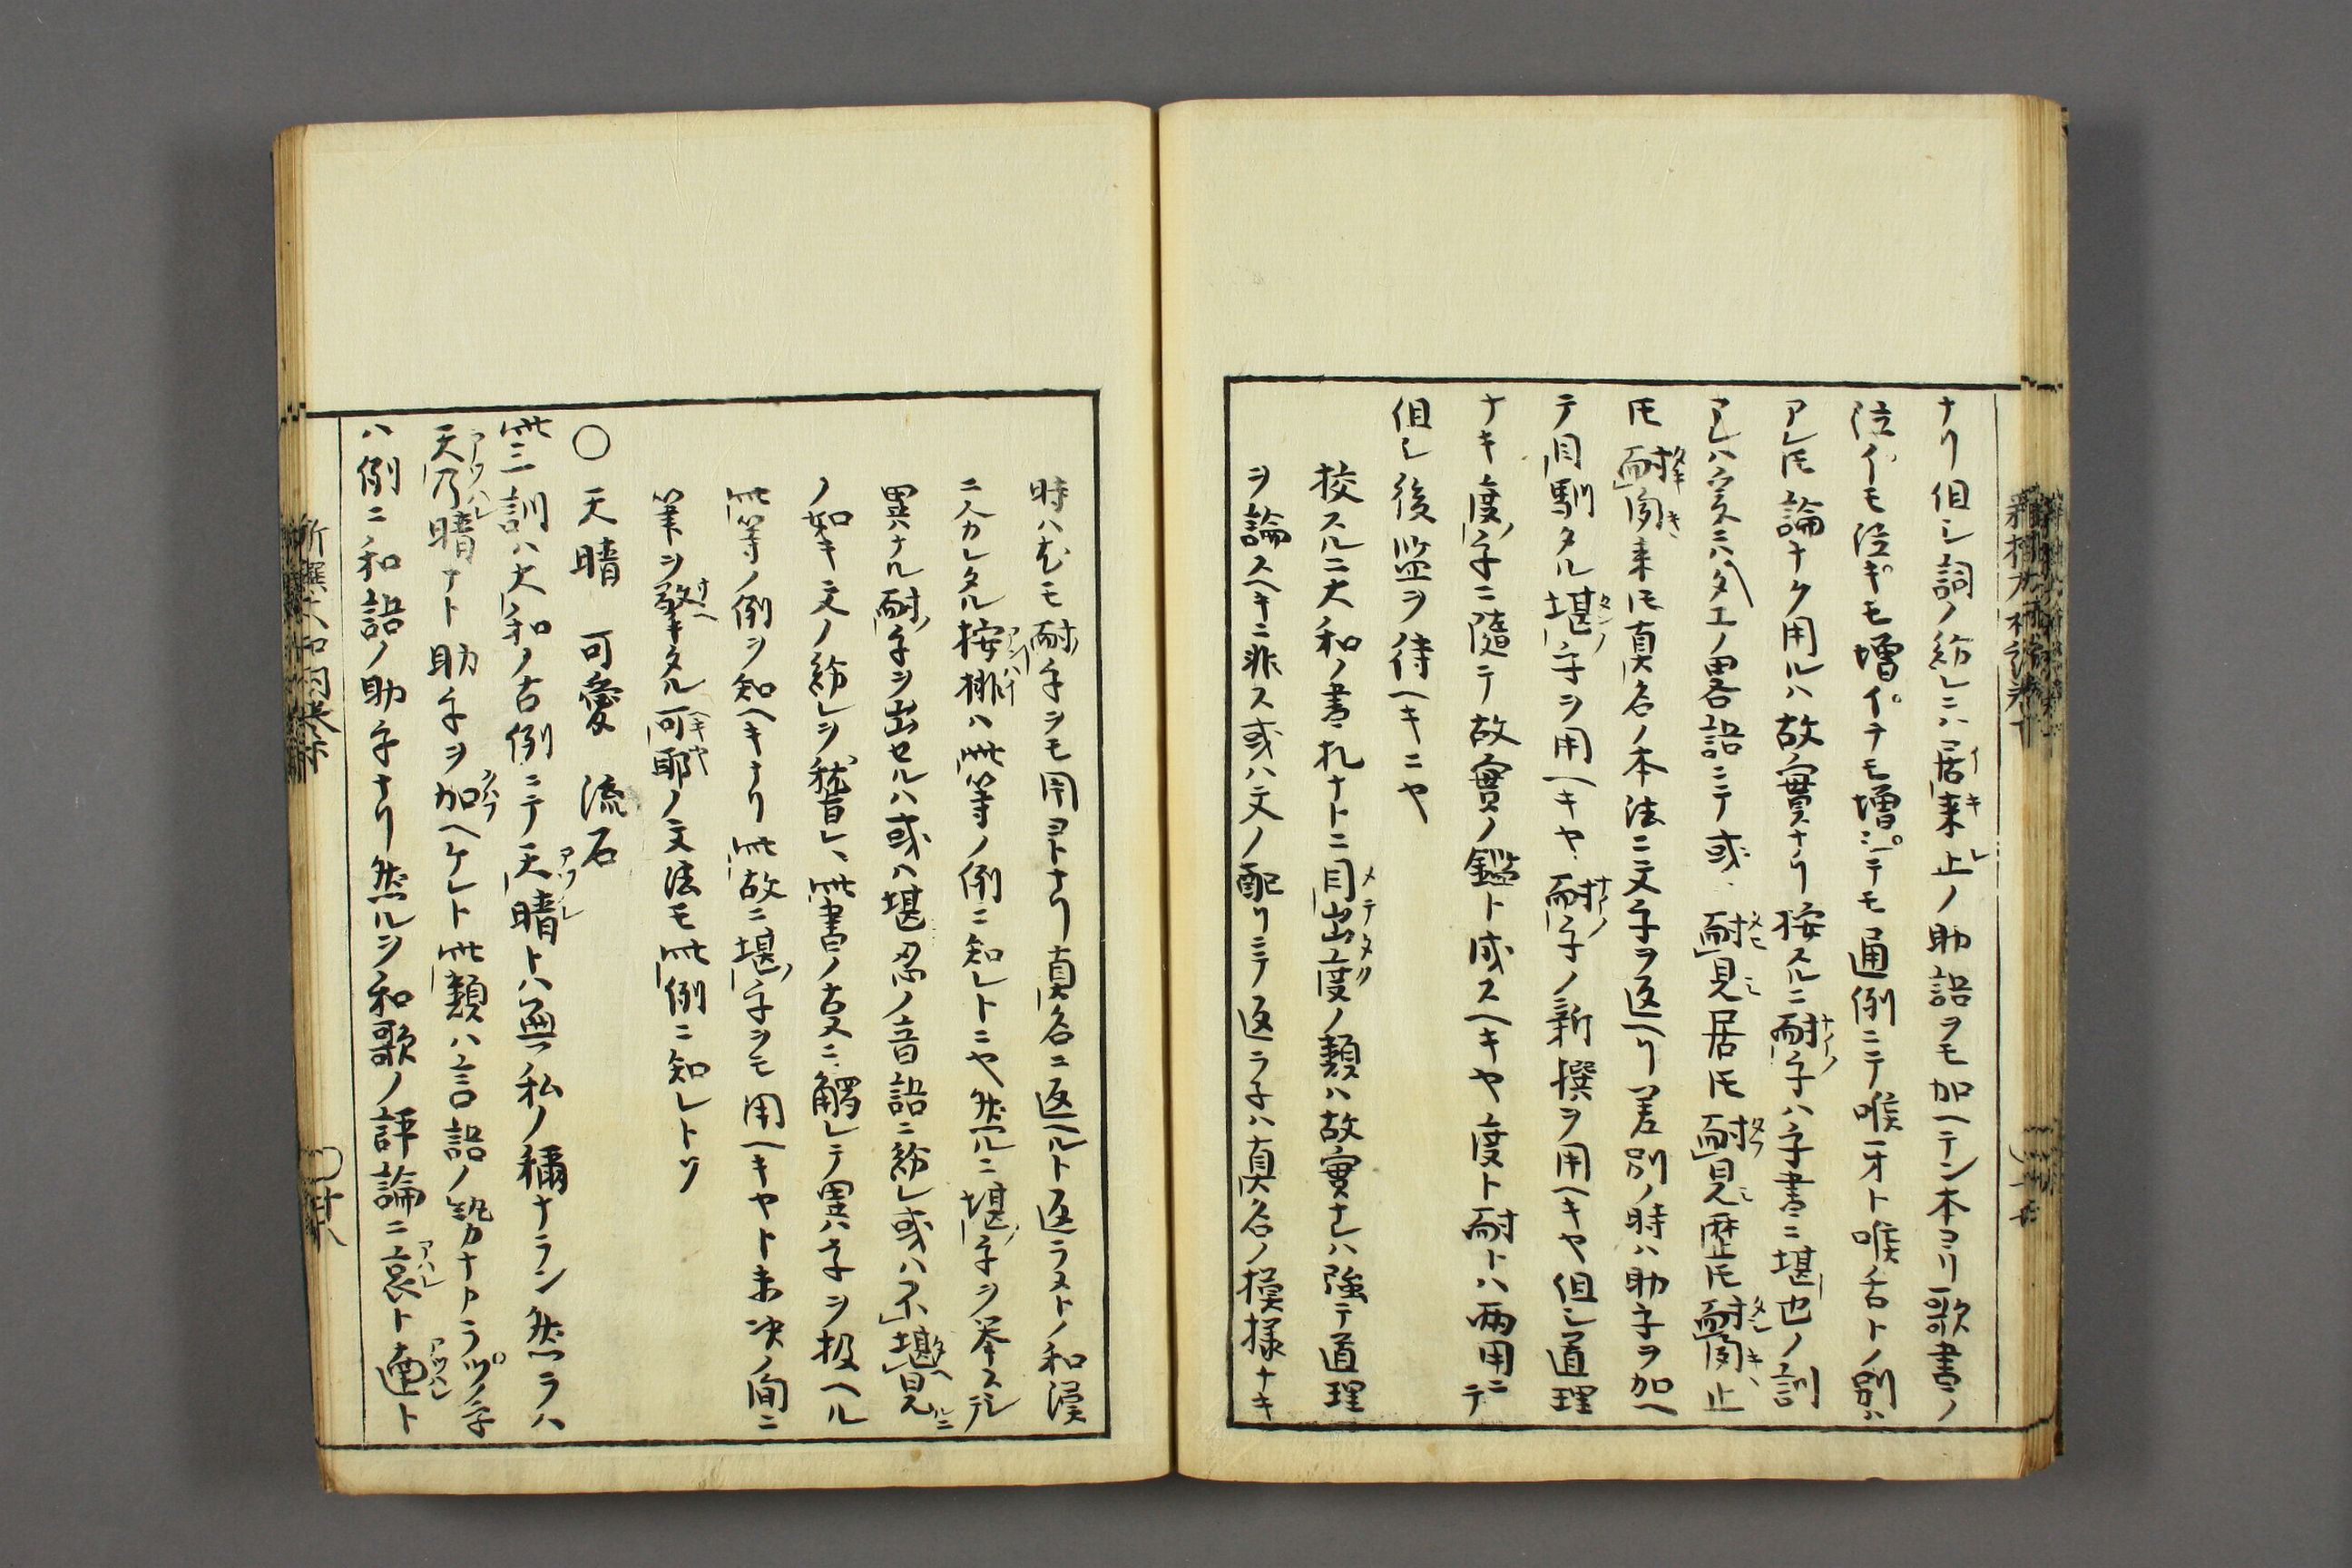 ナリ但シ詞ノ紛レニハ居来止ノ助語ヲモ加ヘテン本ヨリ歌書ノ
泣イモ泣ギモ増イテモ増シテモ通例ニテ喉牙ト喉舌トノ別ハ
アレ𪜈論ナク用ルハ故實ナリ按スルニ耐字ハ字書ニ堪也ノ訓
アレハ爰ニハタエノ畧語ニテ或ハ耐見居𪜈耐見歴𪜈耐聞止
𪜈耐聞来𪜈真名ノ本法ニ文字ヲ返ヘリ差別ノ時ハ助字ヲ加ヘ
テ目馴タル堪字ヲ用ヘキヤ耐字ノ新撰ヲ用ヘキヤ但シ道理
ナキ度字ニ隨テ故實ノ鑑ト成スヘキヤ度ト耐トハ両用ニテ
但シ後監ヲ待ヘキニヤ
校スルニ大和ノ書札ナトニ目出度ノ類ハ故實ナレハ強テ道理
ヲ論スヘキニ非ス或ハ文ノ配リニテ返ラ子ハ真名ノ模様ナキ
時ハ尤モ耐字ヲモ用ヨトナリ真名ニ返ヘルト返ラストノ和漢
ニ入カレタル按排ハ此等ノ例ニ知レトニヤ然ルニ堪字ヲ挙スシテ
異ナル耐字ヲ出セルハ或ハ堪忍ノ音語ニ紛レ或ハ不堪見ルニ
ノ如キ文ノ紛レヲ替レハ此書ノ古文ニ觸レテ異ハ字ヲ扱ヘル
此等ノ例ヲ知ヘキナリ此故ニ堪字ヲモ用ヘキヤト未決ノ間ニ
筆ヲ擎キタル可耶ノ文法モ此例ニ知レトソ
○天晴 可愛 流石
此三訓ハ大和ノ古例ニテ天晴トハ無下私ノ稱ナラン然ラハ
天乃晴アト助字ヲ加ヘケレト此類ハ言語ノ勢カナアラヅノ字
ハ例ニ和語ノ助字ナリ然ルヲ和歌ノ評論ニ哀ト適ト